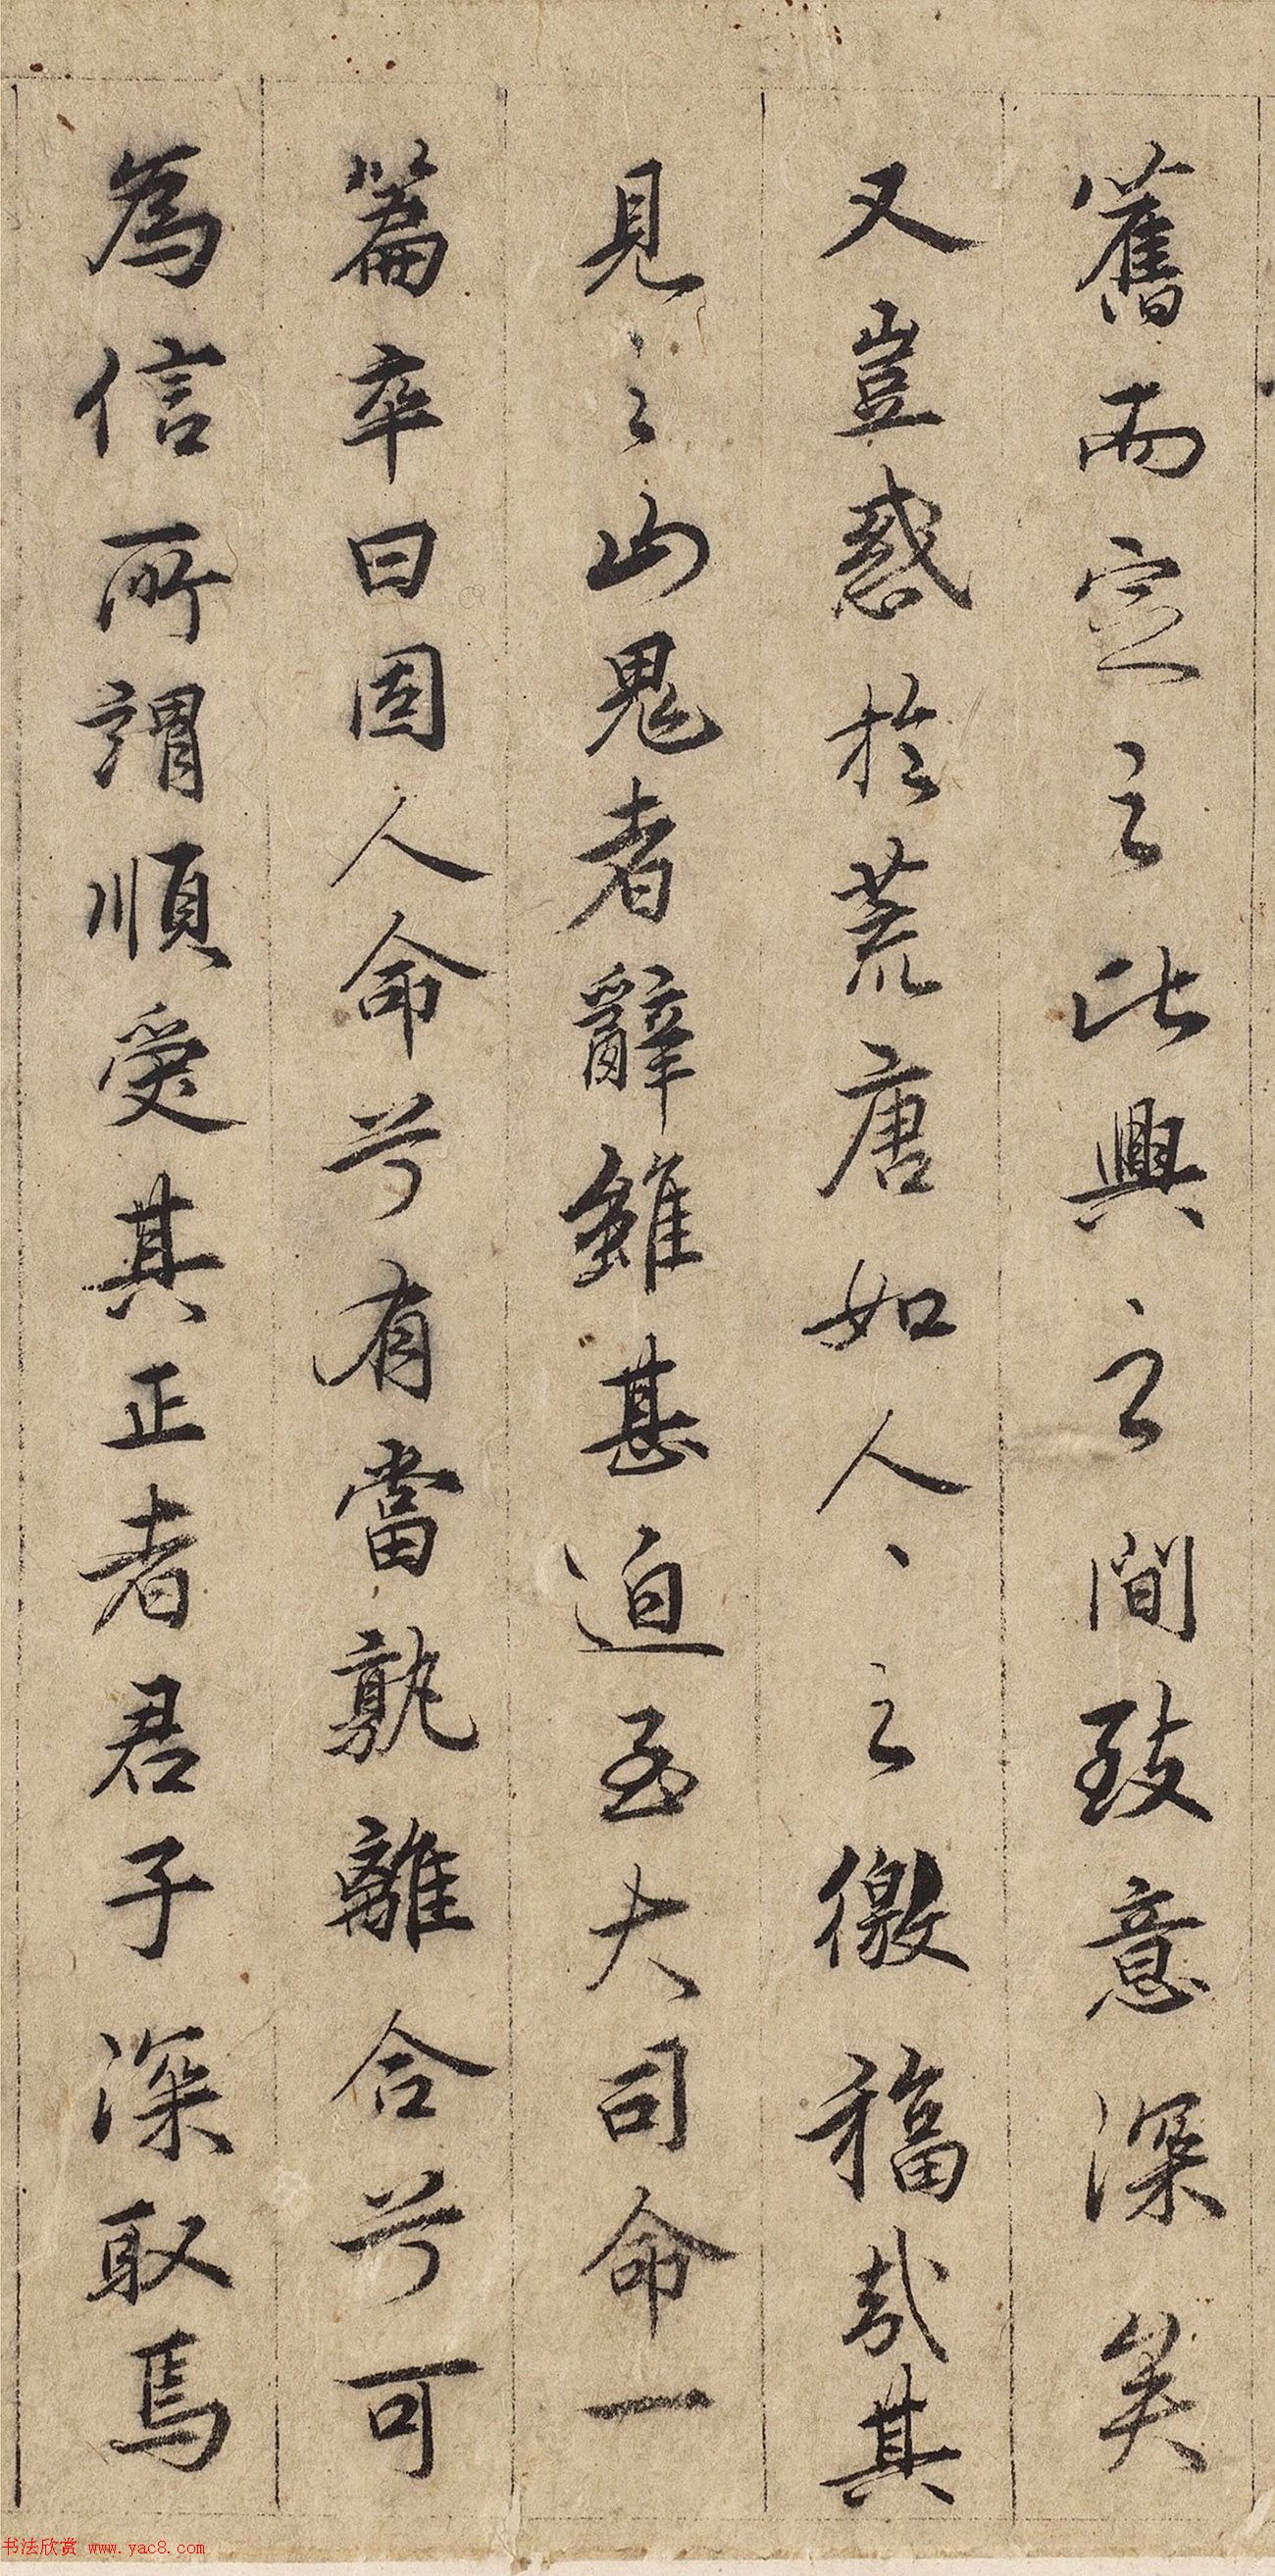 舊而定之比興之間致意深矣
又豈惑於荒唐如人、之徼福哉其
見之山鬼者辭雖甚迫至大司命一
篇卒曰固人命兮有當孰離合兮可
為信所謂順受其正者君子深取焉
书法欣赏 www.yac8.com